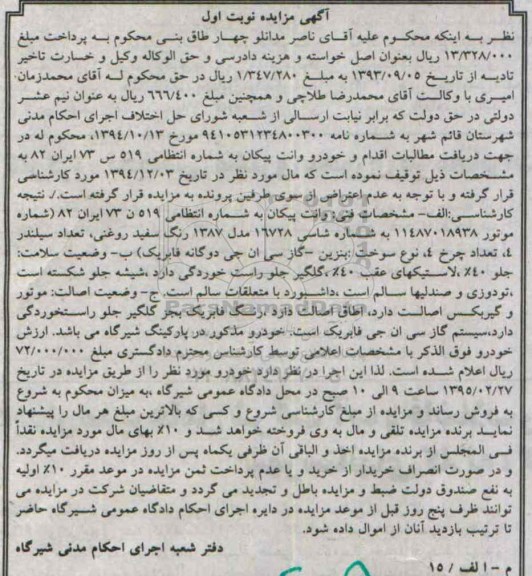 آگهی مزایده نوبت اول
نظر به اینکه محکوم علیه آقای ناصر مدانلو چهار طاق بنی محکوم به پرداخت مبلغ
۱۳/۳۲۸/۰۰۰ ریال بعنوان اصل خواسته و هزینه دادرسی و حق الوکاله وکیل و خسارت تاخیر
تادیه از تاریخ ۱۳۹۳/۰۹/۰۵ به مبلغ ۱/۳۴۷/۲۸۰ ریال در حق محکوم له آقای محمدزمان
امیری با وکالت آقای محمدرضا طلاچی و همچنین مبلغ ۶۶۶/۴۰۰ ریال به عنوان نیم عشر
دولتی در حق دولت که برابر نیابت ارسالی از شعبه شورای حل اختلاف اجرای احکام مدنی
شهرستان قائم شهر به شماره نامه ۹۴۱۰۵۳۱۲۳۴۸۰۰۳۰۰ مورخ ۱۳۹۴/۱۰/۱۳، محکوم له در
جهت دریافت مطالبات اقدام و خودرو وانت پیکان به شماره انتظامی ۵۱۹ س ۷۳ ایران ۸۲ به
مشخصات ذیل توقیف نموده است که مال مورد نظر در تاریخ ۱۳۹۴/۱۲/۰۳ مورد کارشناسی
قرار گرفته و با توجه به عدم اعتراضی از سوی طرفین پرونده به مزایده قرار گرفته است./. نتیجه
کارشناسی:الف- مشخصات فنی: وانت پیکان به شماره انتظامی ۵۱۹ ن ۷۳ ایران ۸۲ (شماره
موتور ۱۱۴۸۷۰۱۸۹۳۸ به شماره شاسی ۱۶۷۲۸ مدل ۱۳۸۷ رنگ سفید روغنی، تعداد سیلندر
۴، تعداد چرخ ۴، نوع سوخت :بنزین –گاز سی ان جی دوگانه فابریک) ب- وضعیت سلامت:
جلو ۴۰٪ ،لاستیکهای عقب ۴۰٪ ،گلگیر جلو راست خوردگی دارد ،شیشه جلو شکسته است
،تودوزی و صندلیها سالم است ،داشبورد با متعلقات سالم است. ج- وضعیت اصالت: موتور
و گیربکس اصالت دارد، اطاق اصالت دارد ،رنگ فابریک بجز گلگیر جلو راستخوردگی
دارد،سیستم گاز سی ان جی فابریک است. خودرو مذکور در پارکینگ شیرگاه می باشد. ارزش
خودرو فوق الذکر با مشخصات اعلامی توسط کارشناس محترم دادگستری مبلغ ۷۲/۰۰۰/۰۰۰
ریال اعلام شده است. لذا این اجرا در نظر دارد خودرو مورد نظر را از طریق مزایده در تاریخ
۱۳۹۵/۰۲/۲۷ ساعت ۹ الی ۱۰ صبح در محل دادگاه عمومی شیرگاه ،به میزان محکوم به شروع
به فروش رساند ومزایده از مبلغ کارشناسی شروع و کسی که بالاترین مبلغ هر مال را پیشنهاد
نماید برنده مزایده تلقی و مال به وی فروخته خواهد شد و ۱۰٪ بهای مال مورد مزایده نقداً
فی المجلس از برنده مزایده اخذ و الباقی آن ظرفی یکماه پس از روز مزایده دریافت میگردد.
و در صورت انصراف خریدار از خرید و یا عدم پرداخت ثمن مزایده در موعد مقرر ۱۰٪ اولیه
به نفع صندوق دولت ضبط و مزایده باطل و تجدید می گردد و متقاضیان شرکت در مزایده می
توانند ظرف پنج روز قبل از موعد مزایده در دایره اجرای احکام دادگاه عمومی شیرگاه حاضر
تا ترتیب بازدید آنان از اموال داده شود.
دفتر شعبه اجرای احکام مدنی شیرگاه
م – الف / ۱۵